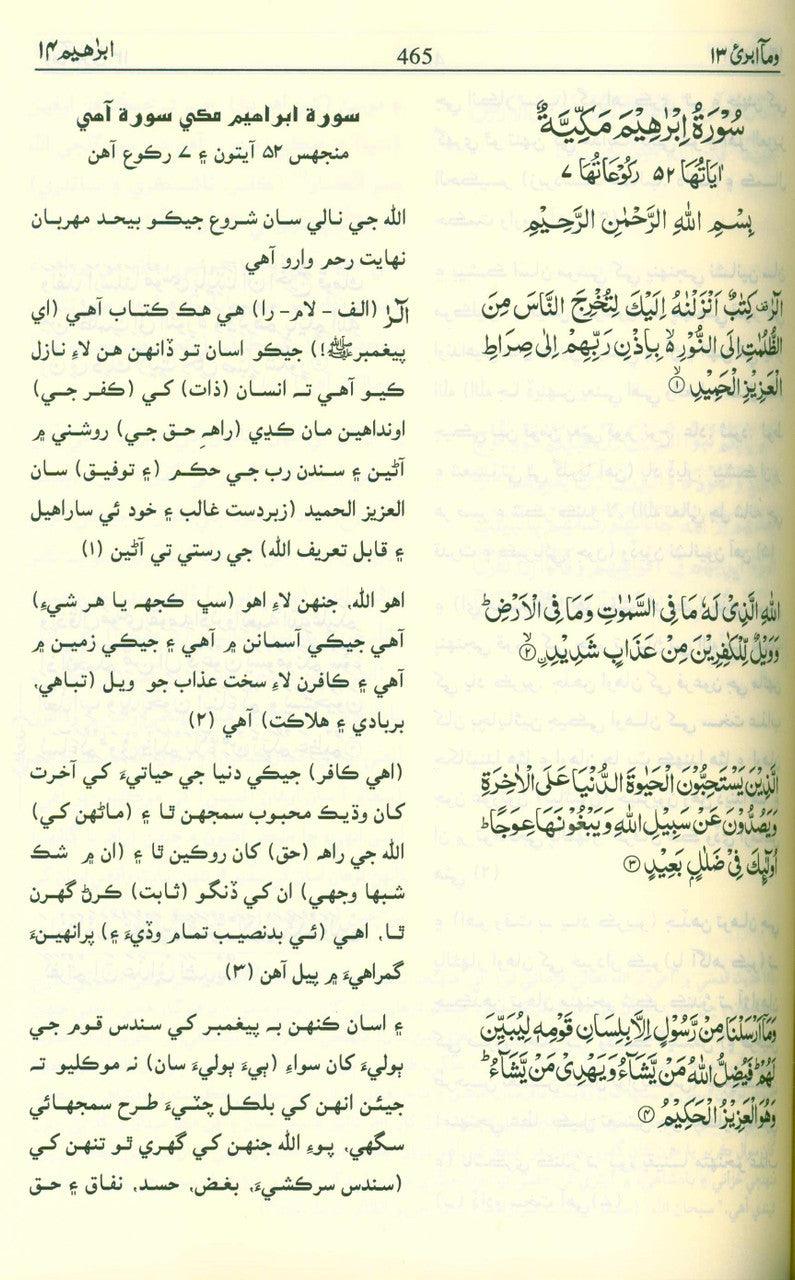 ومآ ابرئ ١٣
465
ابرٰهيم ١۴
سُوْرَةُ اِبْرٰهِيْمَ مَكِّيَّةٌ
اٰيَاتُهَا ٥٢ رُكُوْعَاتُهَا ٧
بِسْمِ اللهِ الرَّحْمٰنِ الرَّحِيْمِ
الٓرٰ ۟ كِتٰبٌ اَنْزَلْنٰهُ اِلَيْكَ لِتُخْرِجَ النَّاسَ مِنَ
الظُّلُمٰتِ اِلَى النُّوْرِ ۙ۬ بِاِذْنِ رَبِّهِمْ اِلٰى صِرَاطِ
الْعَزِيْزِ الْحَمِيْدِ ۙ﴿١﴾
اللهِ الَّذِيْ لَهٗ مَا فِي السَّمٰوٰتِ وَمَا فِي الْاَرْضِ ؕ
وَوَيْلٌ لِّلْكٰفِرِيْنَ مِنْ عَذَابٍ شَدِيْدِۨ ۙ﴿٢﴾
الَّذِيْنَ يَسْتَحِبُّوْنَ الْحَيٰوةَ الدُّنْيَا عَلَى الْاٰخِرَةِ
وَيَصُدُّوْنَ عَنْ سَبِيْلِ اللهِ وَيَبْغُوْنَهَا عِوَجًا ؕ
اُولٰٓئِكَ فِيْ ضَلٰلٍۭ بَعِيْدٍ ﴿٣﴾
وَمَاۤ اَرْسَلْنَا مِنْ رَّسُوْلٍ اِلَّا بِلِسَانِ قَوْمِهٖ لِيُبَيِّنَ
لَهُمْ ؕ فَيُضِلُّ اللهُ مَنْ يَّشَآءُ وَيَهْدِيْ مَنْ يَّشَآءُ ؕ
وَهُوَ الْعَزِيْزُ الْحَكِيْمُ ﴿۴﴾
سورة ابراهيم مڪي سورة آهي
منجهس ٥٢ آيتون ۽ ٧ رڪوع آهن
الله جي نالي سان شروع جيڪو بيحد مهربان
نهايت رحم وارو آهي
الٓرٰ (الف - لام- را) هي هڪ ڪتاب آهي (اي
پيغمبرﷺ!) جيڪو اسان تو ڏانهن هن لاءِ نازل
ڪيو آهي تہ انسان (ذات) کي (ڪفر جي)
اونداهين مان ڪڍي (راهہِ حق جي) روشني ۾
آڻين ۽ سندن رب جي حڪم (۽ توفيق) سان
العزيز الحميد (زبردست غالب ۽ خود ئي ساراهيل
۽ قابل تعريف الله) جي رستي تي آڻين (١)
اهو الله، جنهن لاءِ اهو (سڀ ڪجهہ يا هر شيءِ)
آهي جيڪي آسمانن ۾ آهي ۽ جيڪي زمين ۾
آهي ۽ ڪافرن لاءِ سخت عذاب جو ويل (تباهي،
بربادي ۽ هلاڪت) آهي (٢)
(اهي ڪافر) جيڪي دنيا جي حياتيءَ کي آخرت
کان وڌيڪ محبوب سمجهن ٿا ۽ (ماڻهن کي)
الله جي راهہ (حق) کان روڪين ٿا ۽ (ان ۾ شڪ
شبها وجهي) ان کي ڏنگو (ثابت) ڪرڻ گهرن
ٿا، اهي (ئي بدنصيب تمام وڏيءَ ۽) پرانهينءَ
گمراهيءَ ۾ پيل آهن (٣)
۽ اسان ڪنهن بہ پيغمبر کي سندس قوم جي
ٻوليءَ کان سواءِ (ٻيءَ ٻوليءَ سان) نہ موڪليو تہ
جيئن انهن کي بلڪل چٽيءَ طرح سمجهائي
سگهي، پوءِ الله جنهن کي گهري ٿو تنهن کي
(سندس سرڪشيءَ، بغض، حسد، نفاق ۽ حق